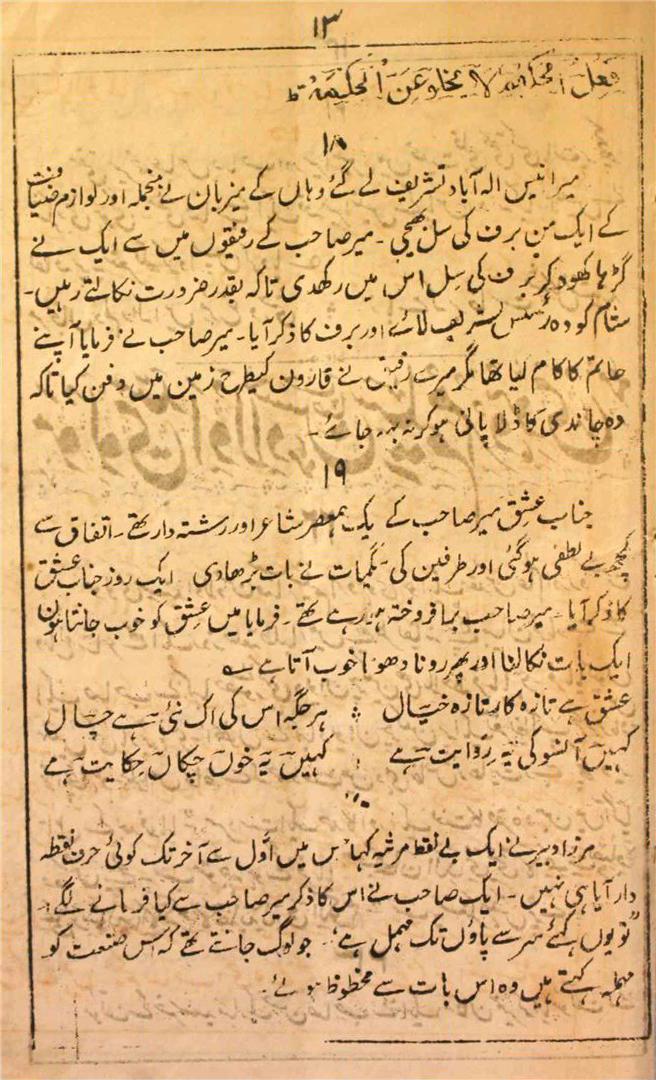 ۱۳
فعل الحکیم لا یخلو عن الحکمۃ ط
۱۸
میر انیس الہ آباد تشریف لے گئے وہاں کے میزبان نے منجملہ اور لوازم ضیافت
کے ایک من برف کی سل بھیجی ۔ میر صاحب کے رفیقوں میں سے ایک نے
گڑہا کھود کر برف کی سِل اس میں رکھدی تاکہ بقدر ضرورت نکالتے رہیں۔
شام کو وہ رئیس تشریف لائے اور برف کا ذکر آیا۔ میر صاحب نے فرمایا آپنے
حاتم کا کام لیا تھا مگر میرے رفیق نے قارون کیطرح زمین میں دفن کیا تاکہ
وہ چاندی کا ڈلا پانی ہوکر نہ بہہ جائے ۔
۱۹
جناب عشق میر صاحب کے یک ہمعصر شاعر اور رشتہ دار تھے۔ اتفاق سے
کچھ بے لطفی ہوگئی اور طرفین کی نگمیات نے بات بڑھادی ایک روز جناب عشق
کا ذکر آیا ۔ میر صاحب برافروختہ ہو رہے تھے ۔ فرمایا میں عشق کو خوب جانتا ہوں
ایک بات نکالنا اور پھر رونا دھونا خوب آتا ہے ؎
عشق ہے تازہ کار تازہ خیال ؛ ہر جگہ اس کی اک نئی ہے چال
کہیں آنسو کی یہ رِوایت ہے ؛ کہیں یہ خوں چکاں حِکایت ہے
۲۰
مرزا دبیر نے ایک بے نقط مرثیہ کہا جس میں اوّل سے آخر تک کوئی حرف نقطہ
دار آیا ہی نہیں ۔ ایک صاحب نے اس کا ذکر میر صاحب سے کیا فرمانے لگے۔
"تو یوں کہئے سر سے پاؤں تک مہمل ہے"۔ جو لوگ جانتے تھے کہ اس صنعت کو
مہملہ کہتے ہیں وہ اس بات سے محظوظ ہوئے ۔